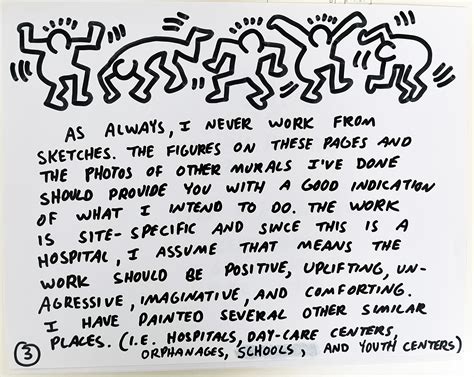 AS ALWAYS, I NEVER WORK FROM
SKETCHES. THE FIGURES ON THESE PAGES AND
THE PHOTOS OF OTHER MURALS I'VE DONE
SHOULD PROVIDE YOU WITH A GOOD INDICATION
OF WHAT I INTEND TO DO. THE WORK
IS SITE-SPECIFIC AND SINCE THIS IS A
HOSPITAL, I ASSUME THAT MEANS THE
WORK SHOULD BE POSITIVE, UPLIFTING, UN-
AGRESSIVE, IMAGINATIVE, AND COMFORTING.
I HAVE PAINTED SEVERAL OTHER SIMILAR
PLACES. (I.E. HOSPITALS, DAY-CARE CENTERS,
ORPHANAGES, SCHOOLS, AND YOUTH CENTERS)
3